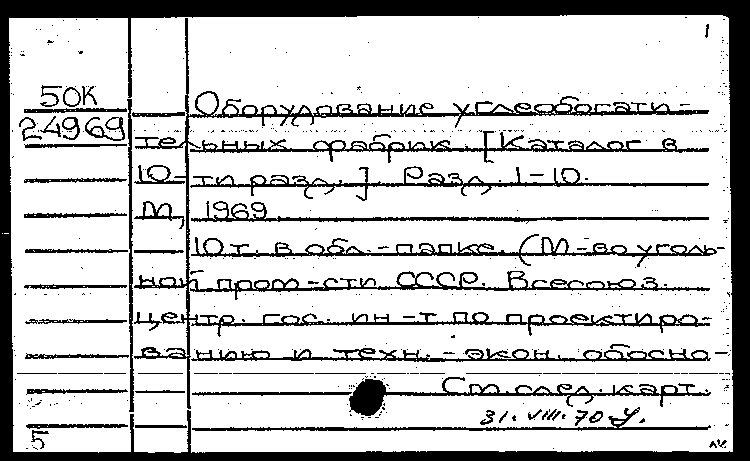 1
50К
24969
Оборудование углеобогати-
тельных фабрик. [Каталог в
10-ти разд.] Разд. 1-10.
М, 1969.
10 т. в обл.-папке. (М-во уголь-
ной пром-сти СССР. Всесоюз.
центр. гос. ин-т по проектиро-
ванию и техн.-экон. обосно-
См. след. карт.
31.VIII.70
5